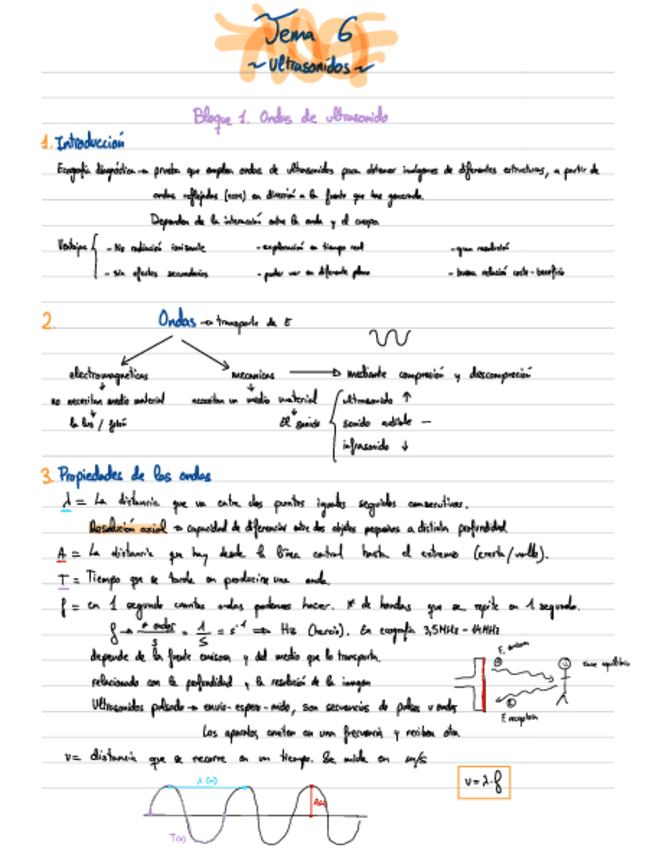 Tema 6
~ Ultrasonidos ~
Bloque 1. Ondas de ultrasonido
1. Introducción
Ecografía diagnóstica → prueba que emplea ondas de ultrasonidos para obtener imágenes de diferentes estructuras, a partir de
ondas reflejadas (ecos) en dirección a la fuente que las generada.
Dependen de la interacción entre la onda y el cuerpo
Ventajas { - No radiación ionizante - exploración en tiempo real - gran resolución
- sin efectos secundarios - poder ver en diferente plano - buena relación coste-beneficio
2. Ondas → transporte de E
electromagnéticas mecánicas → mediante compresión y descompresión
no necesitan medio material necesitan un medio material ultrasonido ↑
la luz / fotón El sonido sonido audible —
infrasonido ↓
3. Propiedades de las ondas
λ = La distancia que va entre dos puntos iguales seguidos consecutivos.
Resolución axial → capacidad de diferenciar entre dos objetos pequeños a distinta profundidad
A = La distancia que hay desde la línea central hasta el extremo (cresta/valle).
T = Tiempo que se tarda en producirse una onda.
f = en 1 segundo cuantas ondas podemos hacer. nº de hondas que se repite en 1 segundo.
f → nº ondas/s = 1/s = s⁻¹ ⇒ Hz (hercio). En ecografía 3,5MHz - 14MHz
depende de la fuente emisora y del medio que lo transporta.
relacionado con la profundidad y la resolución de la imagen
Ultrasonidos pulsado → envío-espero-mido, son secuencias de pulsos u ondas
Los aparatos emiten en una frecuencia y reciben otra
v = distancia que se recorre en un tiempo. Se mide en m/s
v = λ·f
λ (m)
T(s)